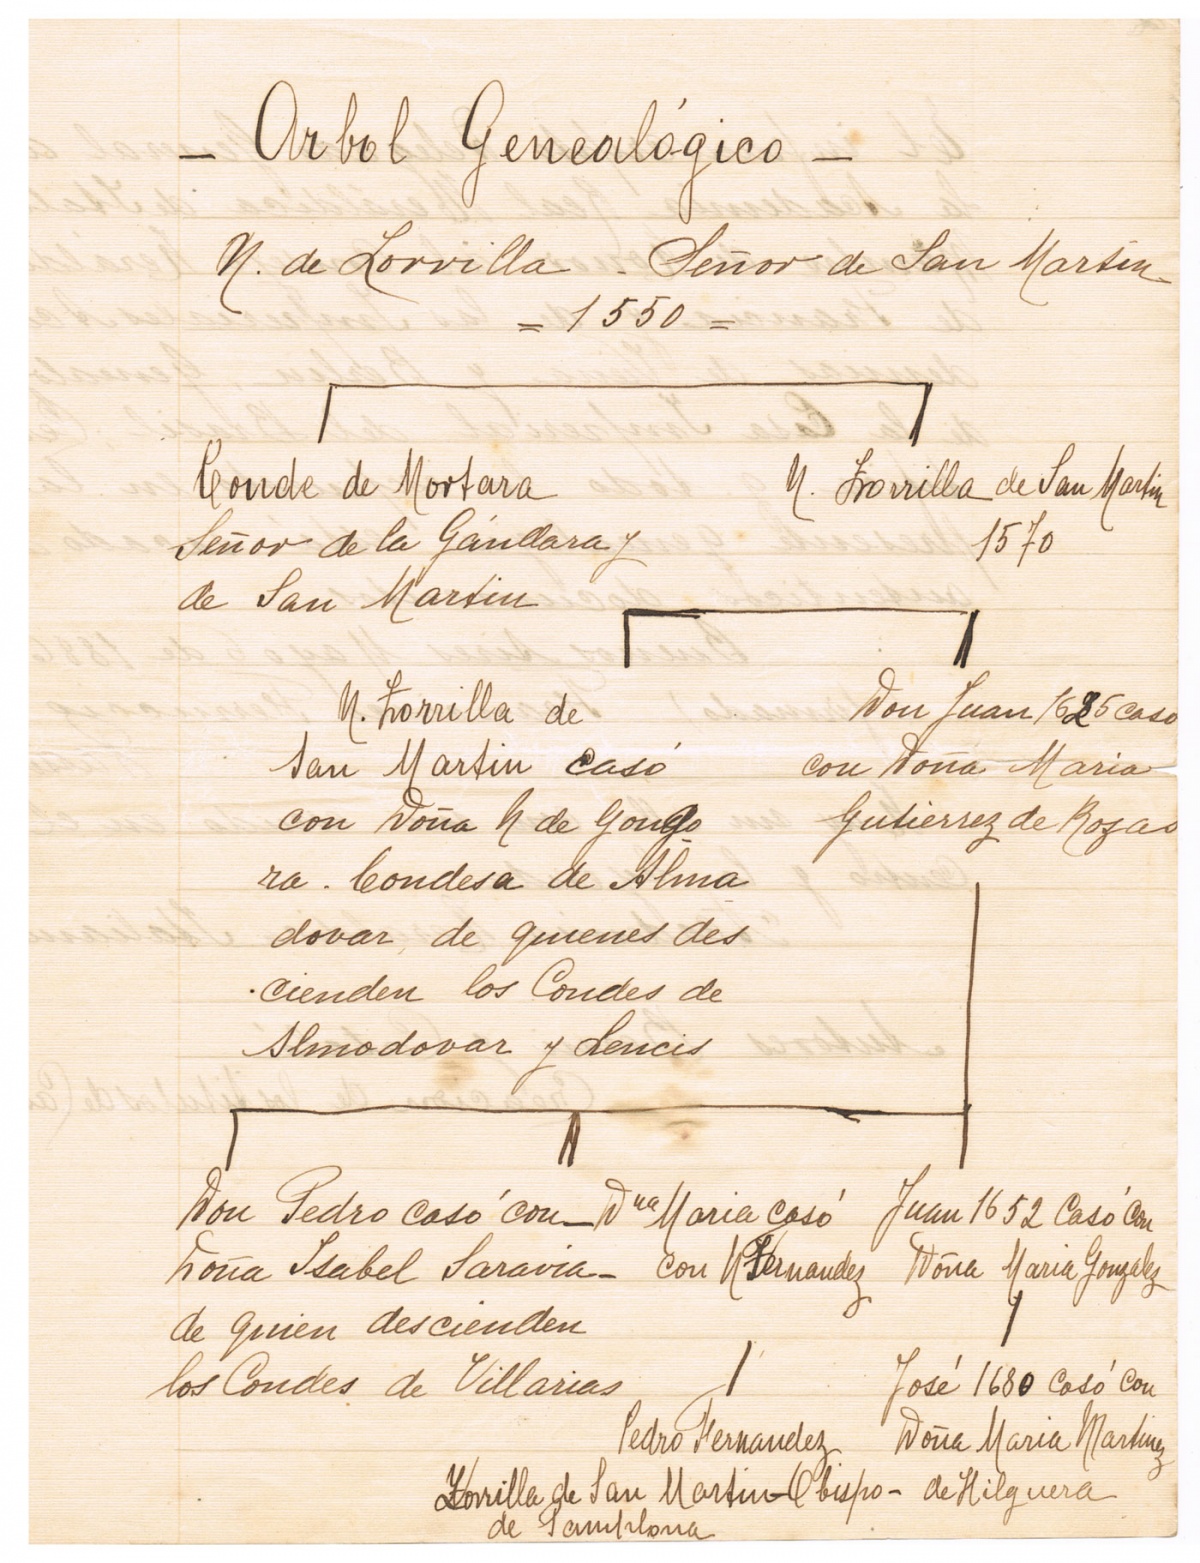 - Arbol Genealógico -
N. de Zorrilla - Señor de San Martin
= 1550 =
Conde de Mortara
Señor de la Gándara y
de San Martin
N. Zorrilla de San Martin
1570
N. Zorrilla de
San Martin casó
con Doña N de Gongo
ra. Condesa de Alma
dovar, de quienes des
cienden los Condes de
Almodovar y Lencis
Don Juan 1625 caso
con Doña Maria
Gutierrez de Rozas
Don Pedro casó con
Doña Isabel Saravia-
de quien descienden
los Condes de Villarias
Dna Maria casó
con N Fernandez
Pedro Fernandez
Zorrilla de San Martin-Obispo-
de Pamplona
Juan 1652 Casó con
Doña Maria Gonzalez
José 1680 casó con
Doña Maria Martinez
de Hilguera